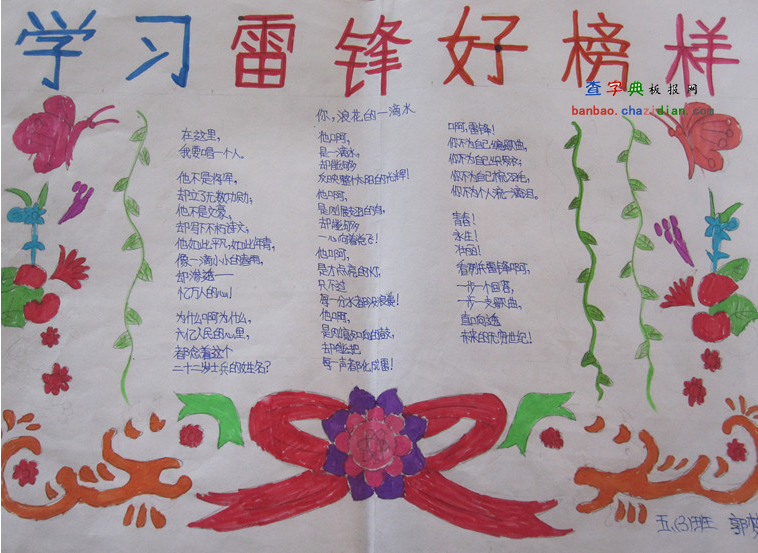 学习雷锋好榜样
查字典板报网
banbao.chazidian.com
你,浪花的一滴水
在这里,
我要唱一个人。
他不是将军,
却立了无数功勋;
他不是文豪,
却写下不朽诗文;
他如此平凡,如此年青,
像一滴小小的春雨,
却渗透——
亿万人的心!
为什么啊为什么,
六亿人民的心里,
都念着这个
二十二岁士兵的姓名?
他啊,
是一滴水,
却能够
反映整个太阳的光辉!
他啊,
是刚展翅的鸟,
却能够
一心向着党飞!
他啊,
是才点亮的灯,
只不过
每一分
他啊,
是刚敲响的鼓,
却能把
每一声都化成雷!
啊,雷锋!
你不为自己编歌曲,
你不为自己织罗衣;
你不为自己梳羽毛,
你不为个人流一滴泪。
青春!
永生!
壮丽!
看前头雷锋啊,
一步一个回答,
一步一支歌曲,
直向
未来的无穷世纪!
五(3)班 郭